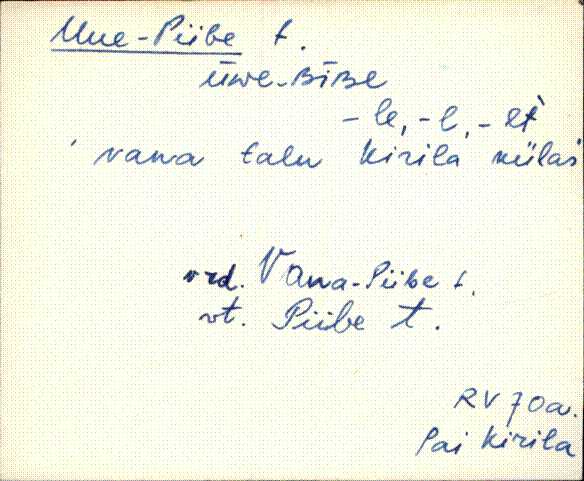 Uue-Piibe t.
ūwe-ʙīʙe
-le, -l, -lt
vana talu Kirila külas
vrd. Vana-Piibe t.
vt. Piibe t.
RV 70a.
Pai Kirila